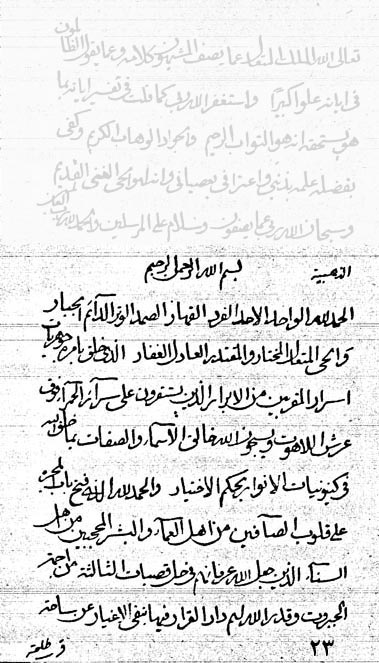 تعالى الله الملك المتعال عما يصف المشبهون وكلامه وعما يقول الظالمون
في اياته علوا كبيرا واستغفر الله ربي كما قلت في تفسير اياته بما
هو يستحقه انه هو التواب الرحيم والجواد الوهاب الكريم وكفى
بفضله علمه بذنبي واعترافي بعصياني وانه لهو الحي الغني القديم
وسبحان الله ربي عما يصفون وسلام على المرسلين والحمد لله رب العالمين
الذهبية
بسم الله الرحمن الرحيم
الحمد لله الواحد الاحد الفرد القهار الصمد الوتر الدائم الجبار
والحي المختار والمقتدر العادل الغفار الذي خلق بامره
اسرار المقربين من الابرار الذين يستقرون على سرائر
عرش اللاهوت ويسبحون الله خالق الاسماء والصفات بما خلق الله
في كينونيات الانوار بحكم الاختيار والحمد لله الذي فتح باب
على قلوب الصافين من اهل العماء والبشر المحبين من اهل
السناء الذين جعل الله عرفانهم في قصبات الثالثة من اجمة
الجبروت وقدر الله لهم دار القرار فيها بنفي الاغيار عن ساحة
قرب طلعته
٢٣